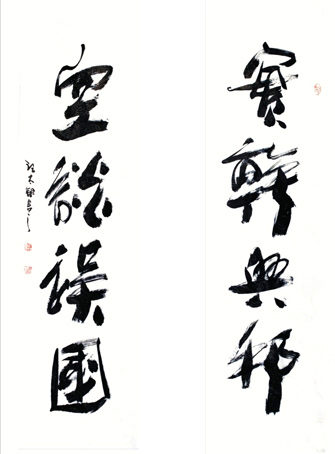 實幹興邦
空談誤國